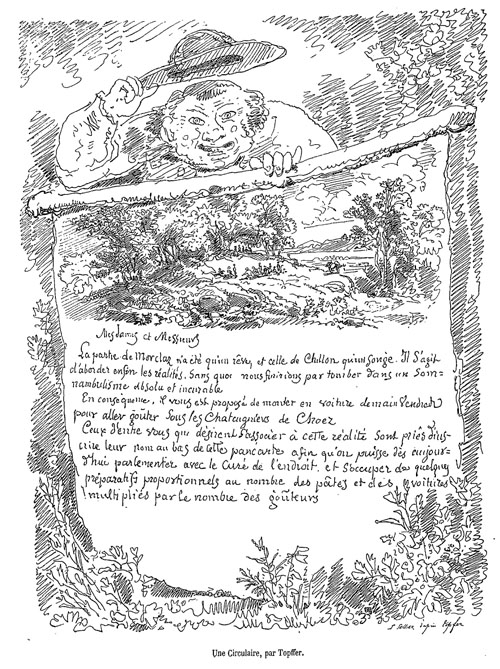 Mesdames et Messieurs
La partie de Morclaz n'a été qu'un rêve, et celle de Chillon qu'un songe. Il s'agit
d'aborder enfin les réalités, sans quoi nous finirions par tomber dans un Som-
nambulisme absolu et incurable
En conséquence, il vous est proposé de monter en voiture demain Vendredi
pour aller goûter sous les Chataigniers de Choez
Ceux d'entre vous qui désirent s'associer à cette réalité sont priés d'ins-
crire leur nom au bas de cette pancarte afin qu'on puisse dès aujour-
d'hui parlementer avec le Curé de l'endroit, et s'occuper des quelques
préparatifs proportionnels au nombre des pâtes et des voitures
multipliés par le nombre des goûteurs
Une Circulaire, par Topffer.